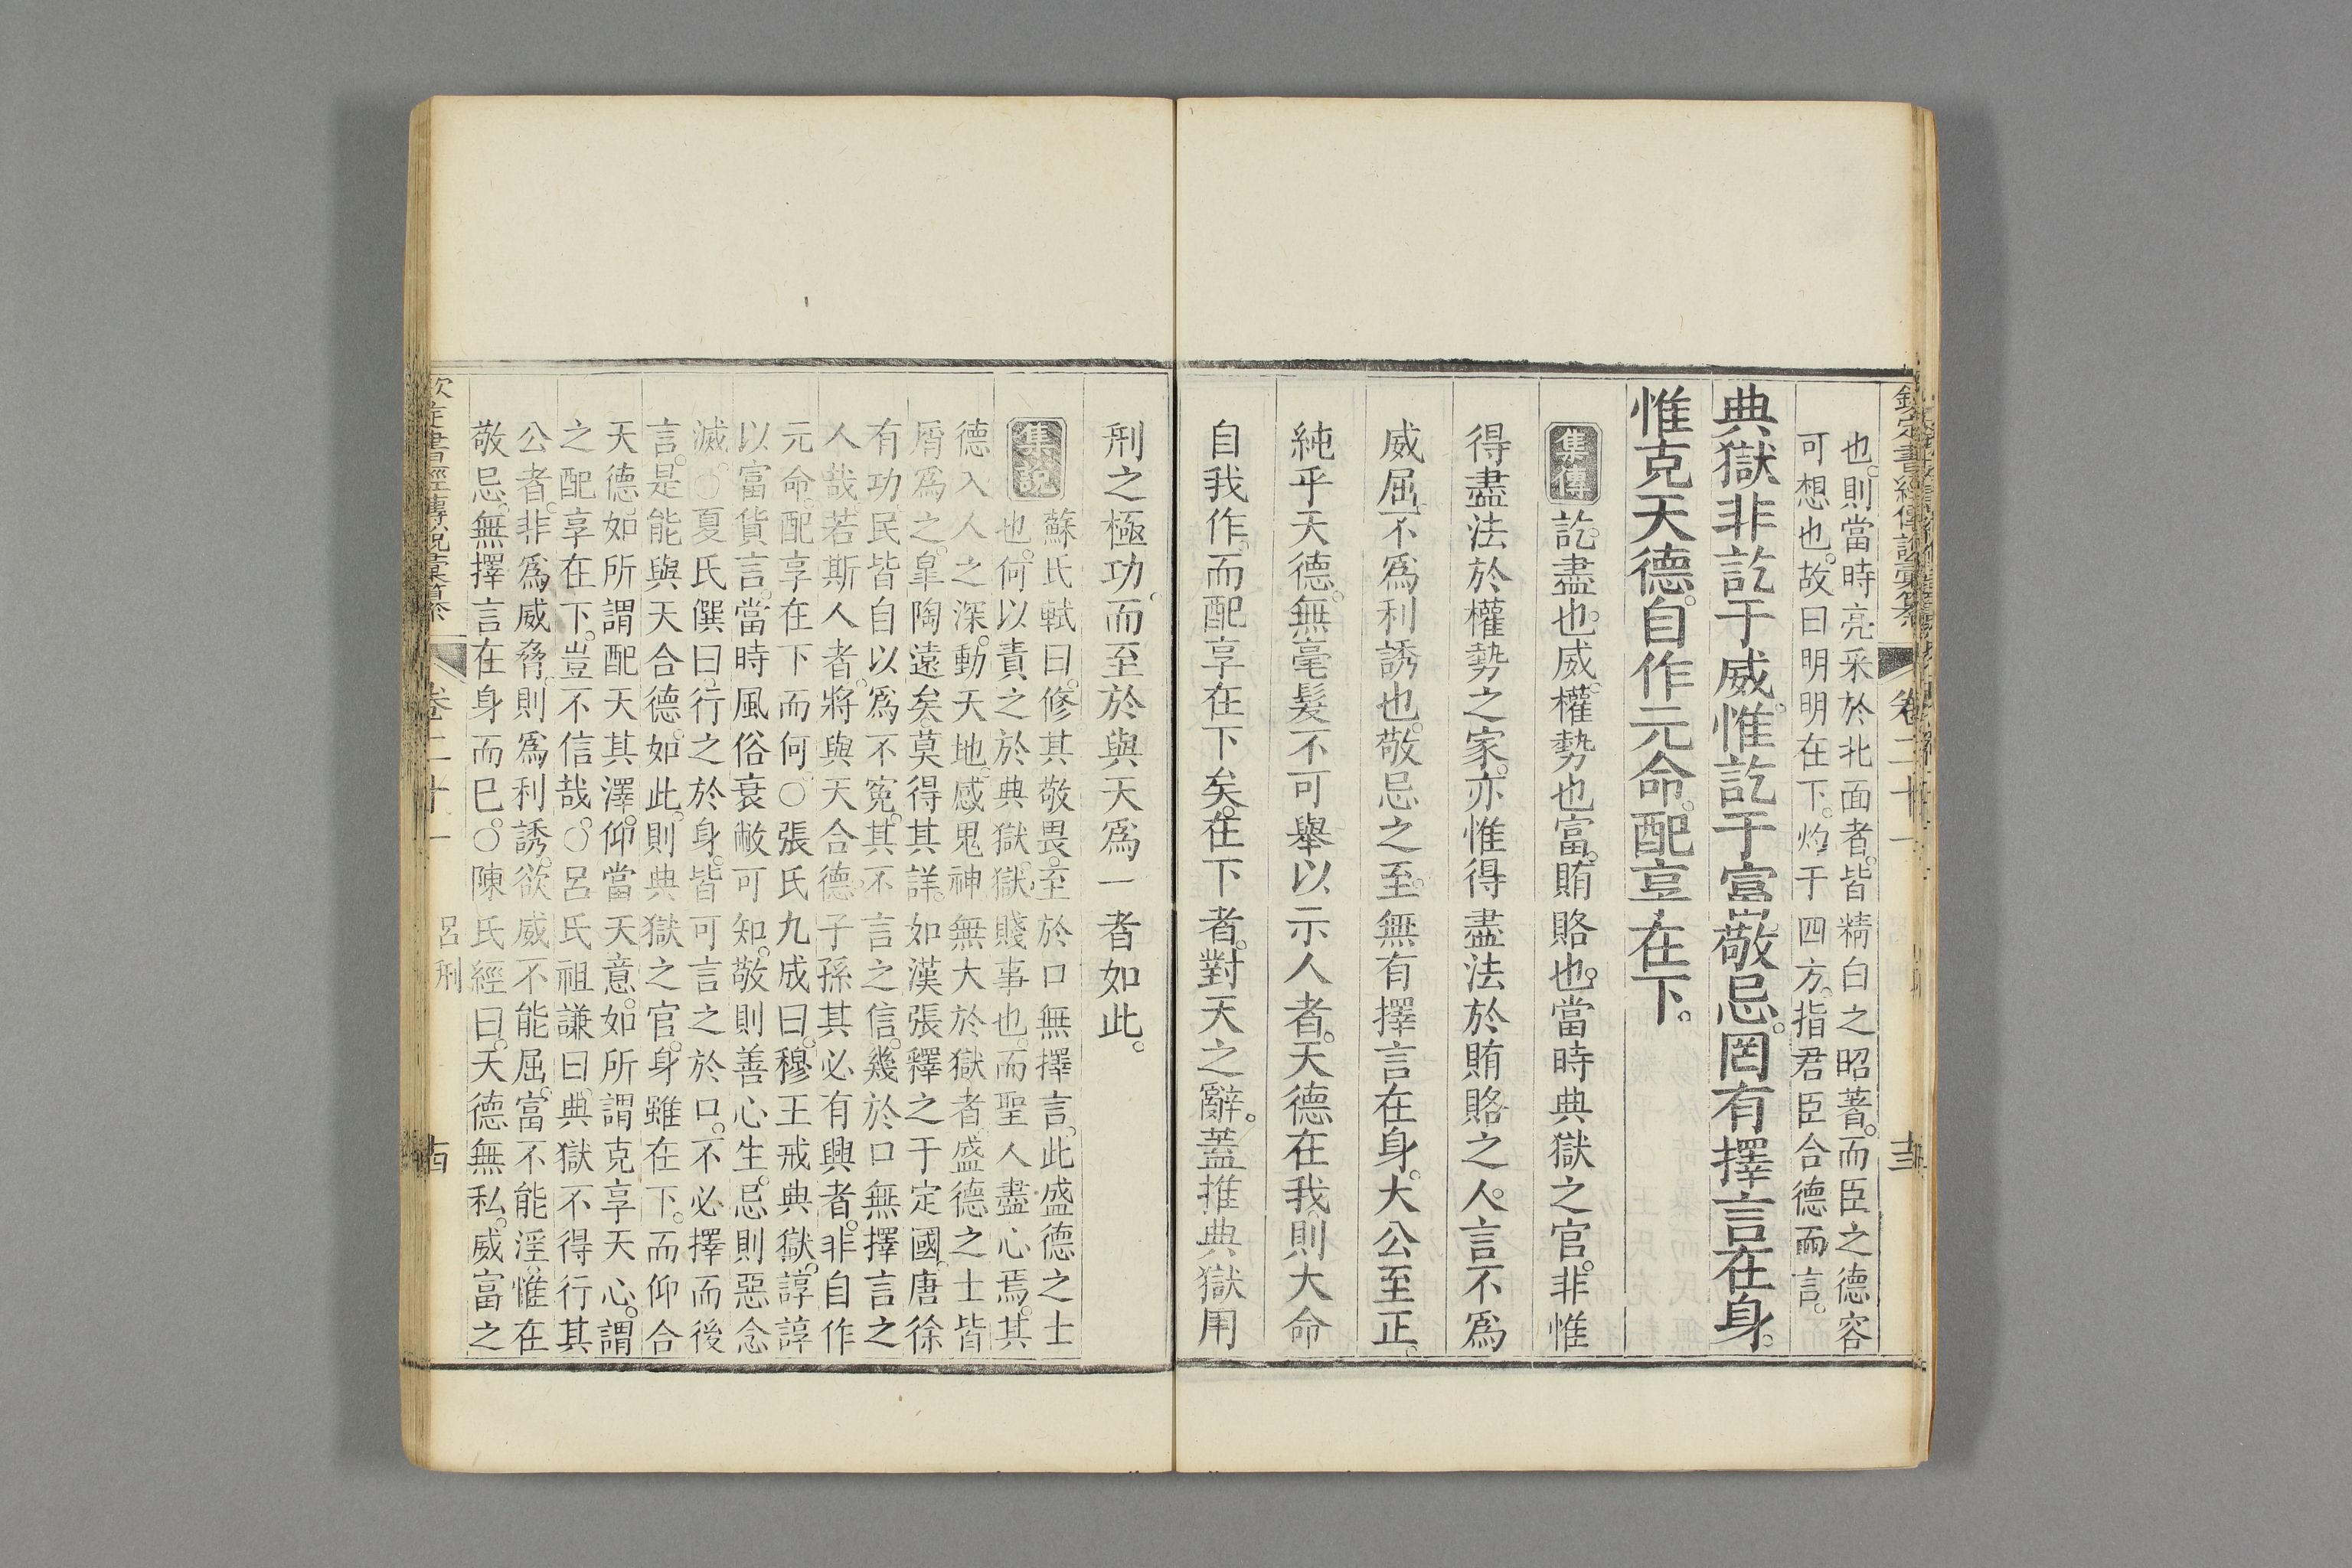 欽定書經傳說彙纂 卷二十一
也。則當時亮采於北面者。皆精白之昭著。而臣之德容
可想也。故曰明明在下。灼于四方。指君臣合德而言。
典獄非訖于威。惟訖于富。敬忌。罔有擇言在身。
惟克天德。自作元命。配享在下。
集傳 訖。盡也。威。權勢也。富。賄賂也。當時典獄之官。非惟
得盡法於權勢之家。亦惟得盡法於賄賂之人。言不爲
威屈。不爲利誘也。敬忌之至。無有擇言在身。大公至正。
純乎天德。無毫髮不可舉以示人者。天德在我。則大命
自我作。而配享在下矣。在下者。對天之辭。蓋推典獄用
刑之極功。而至於與天爲一者如此。
集說 蘇氏軾曰。修其敬畏。至於口無擇言。此盛德之士
也。何以責之於典獄。獄。賤事也。而聖人盡心焉。其
德入人之深。動天地。感鬼神。無大於獄者。盛德之士皆
屑爲之。皐陶遠矣。莫得其詳。如漢張釋之于定國。唐徐
有功。民皆自以爲不冤。其不言之信。幾於口無擇言之
人哉。若斯人者。將與天合德。子孫其必有興者。非自作
元命。配享在下而何。○張氏九成曰。穆王戒典獄。諄諄
以富貨言。當時風俗衰敝可知。敬則善心生。忌則惡念
滅。○夏氏僎曰。行之於身。皆可言之於口。不必擇而後
言。是能與天合德。如此。則典獄之官。身雖在下。而仰合
天德。如所謂配天其澤。仰當天意。如所謂克享天心。謂
之配享在下。豈不信哉。○呂氏祖謙曰。典獄不得行其
公者。非爲威脅。則爲利誘。欲威不能屈。富不能淫。惟在
敬忌。無擇言在身而巳。○陳氏經曰。天德無私。威富之
欽定書經傳說彙纂 卷二十一 呂刑 十四